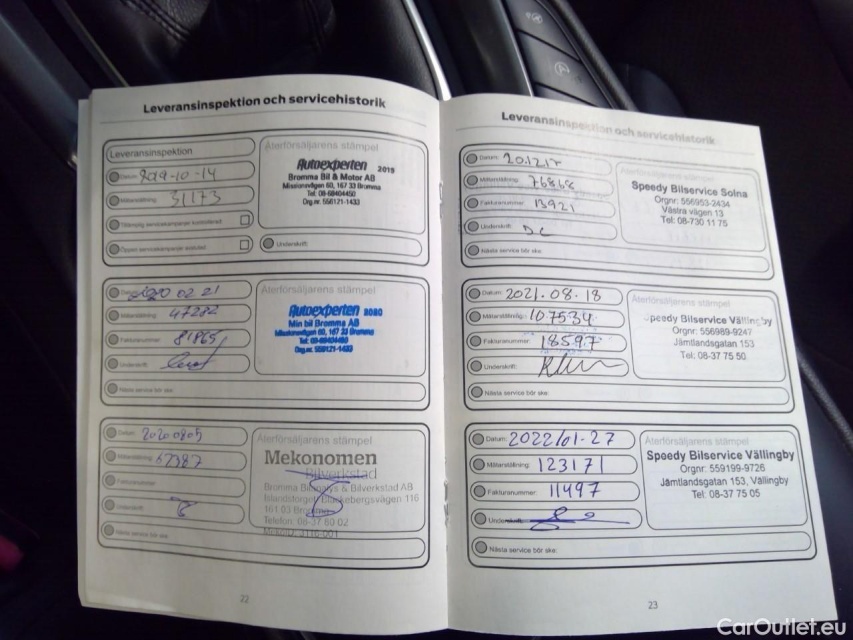 Leveransinspektion och servicehistorik
Leveransinspektion
Datum: 2019-10-14
Mätarställning: 31173
Underskrift:
Återförsäljarens stämpel
Autoexperten 2019
Bromma Bil & Motor AB
Missionsvägen 60, 167 33 Bromma
Tel: 08-68404450
Org.nr. 556121-1433
Datum: 2020 02 21
Mätarställning: 47282
Fakturanummer: 81865
Underskrift:
Nästa service bör ske:
Återförsäljarens stämpel
Autoexperten 2020
Min bil Bromma AB
Missionsvägen 60, 167 33 Bromma
Tel: 08-68404450
Org.nr. 556121-1433
Datum: 20200805
Mätarställning: 67387
Fakturanummer:
Underskrift:
Nästa service bör ske:
Återförsäljarens stämpel
Mekonomen
Bilverkstad
& Bilverkstad AB
bergsvägen 116
161 03
Telefon: 08-37 60 02
22
Leveransinspektion och servicehistorik
Datum:
Mätarställning: 76868
Fakturanummer: 13921
Underskrift: DC
Nästa service bör ske:
Återförsäljarens stämpel
Speedy Bilservice Solna
Orgnr: 556953-2434
Västra vägen 13
Tel: 08-730 11 75
Datum: 2021.08.18
Mätarställning: 107534
Fakturanummer: 18597
Underskrift:
Nästa service bör ske:
Återförsäljarens stämpel
Speedy Bilservice Vällingby
Orgnr: 556989-9247
Jämtlandsgatan 153
Tel: 08-37 75 50
Datum: 2022/01-27
Mätarställning: 123171
Fakturanummer: 11497
Underskrift:
Nästa service bör ske:
Återförsäljarens stämpel
Speedy Bilservice Vällingby
Orgnr: 559199-9726
Jämtlandsgatan 153, Vällingby
Tel: 08-37 75 05
23
CarOutlet.eu